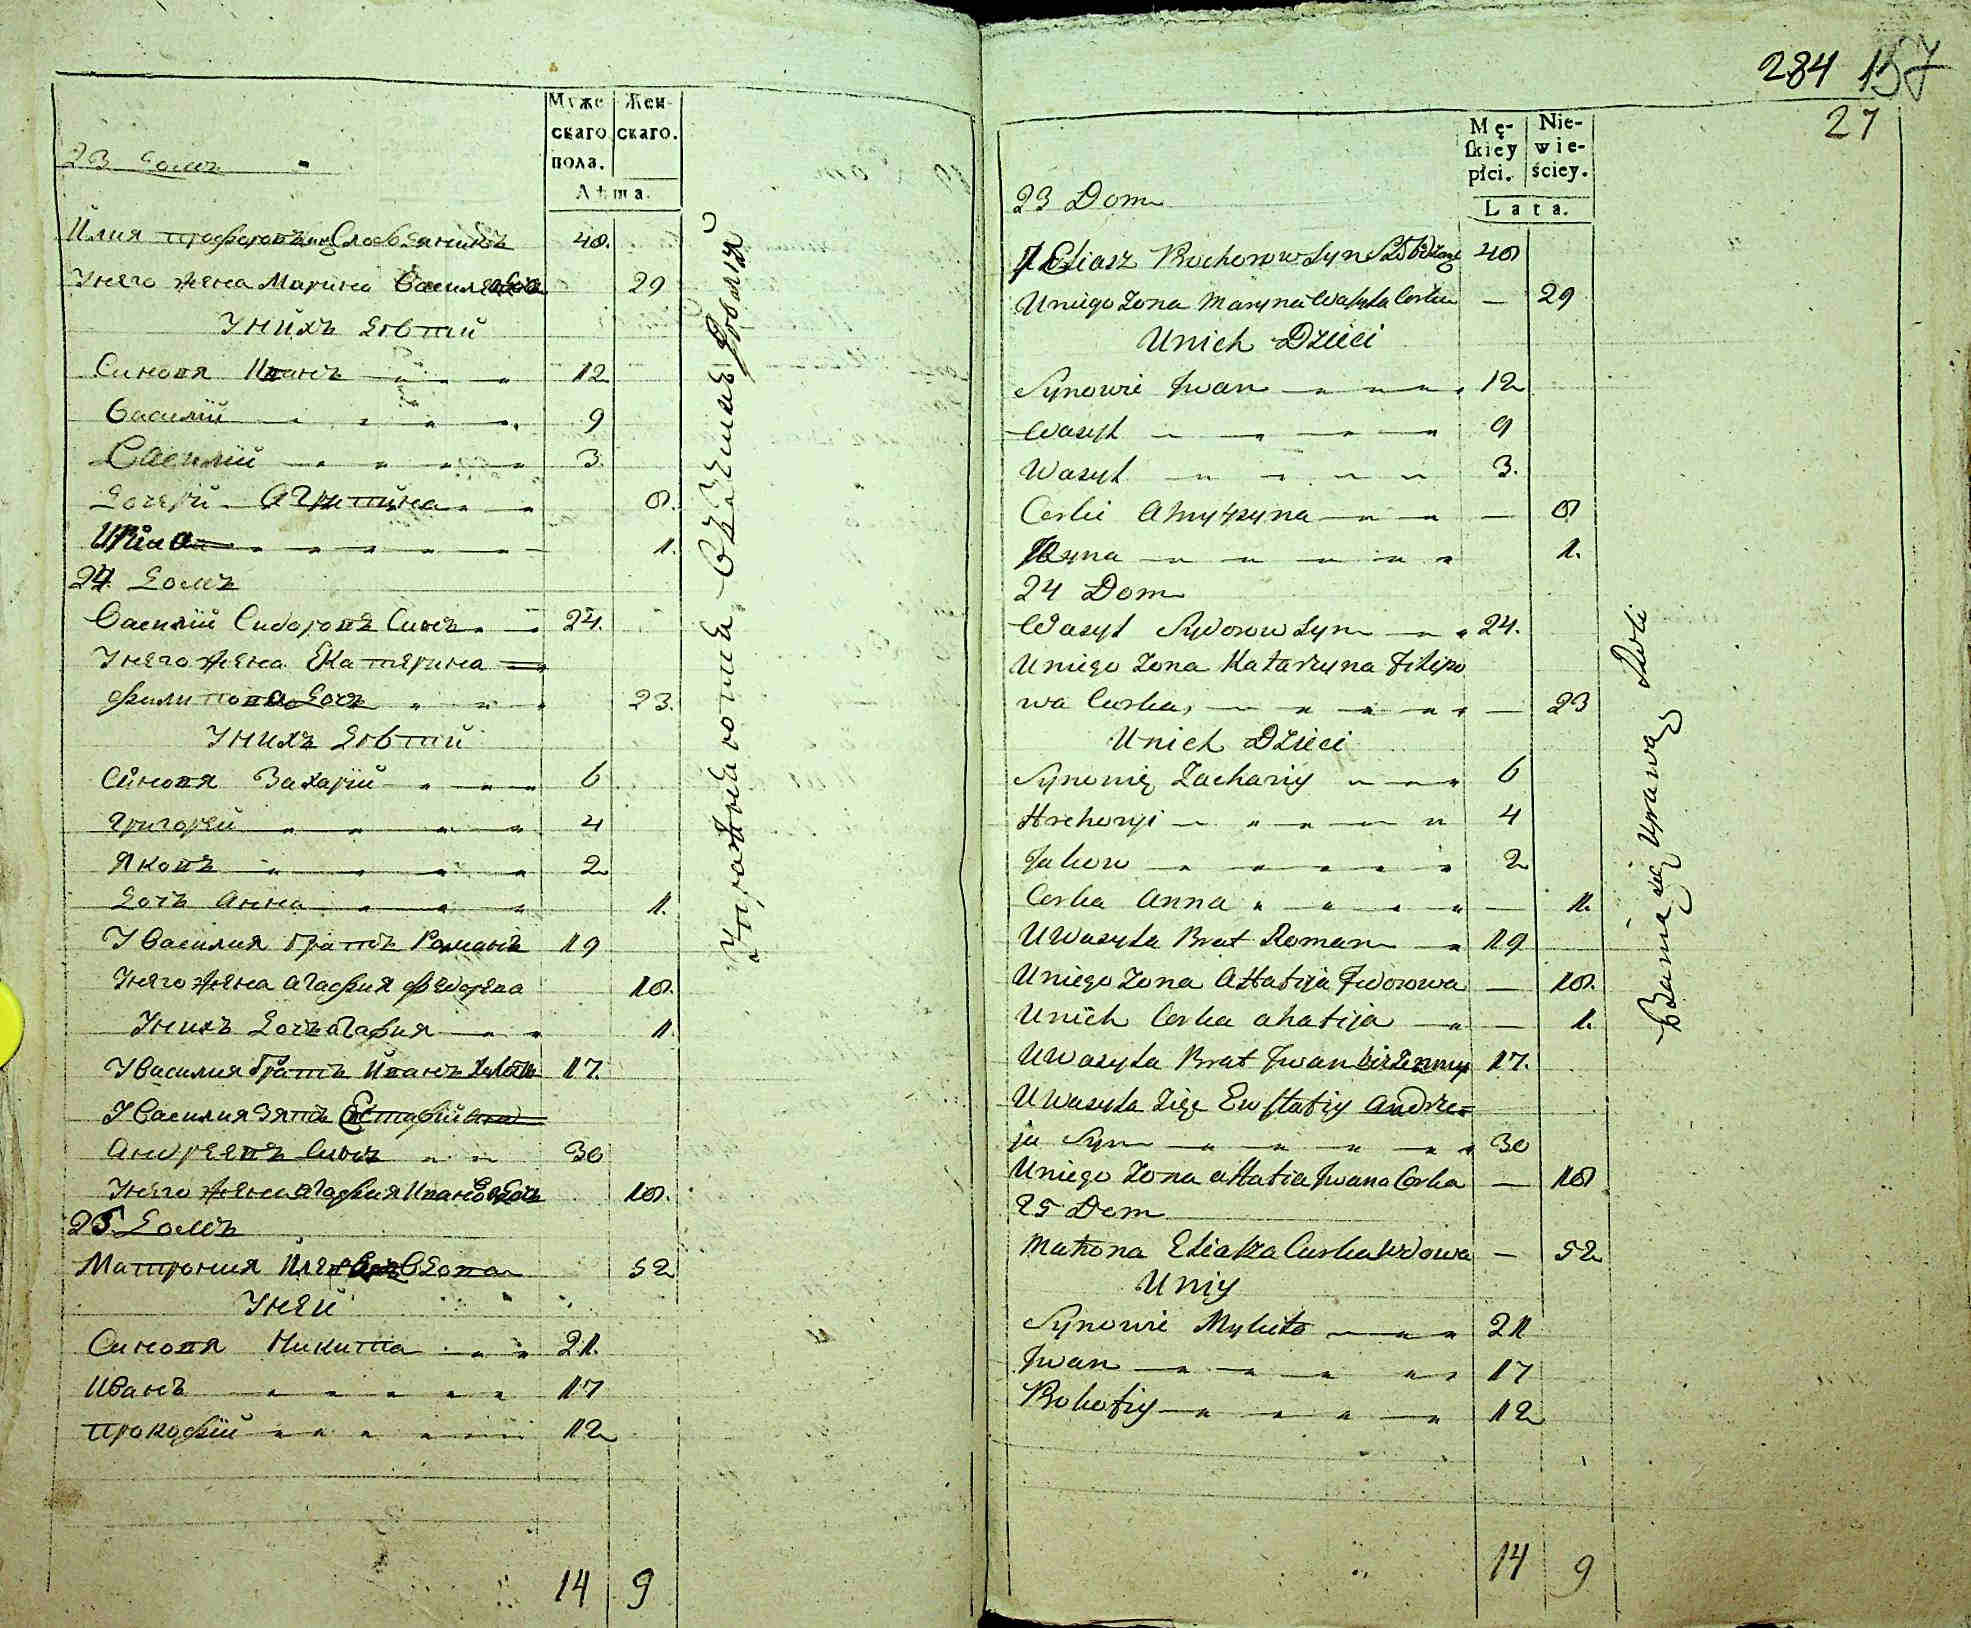 Муже
скаго
пола.
Жен
скаго.
Лѣта.
23 Домъ
Илия Прохоровъ Синъ
40.
Унего жена Марина Василева
29
Унихъ Дѣти
Синовя Иванъ
12
Василій
9
Василій
3.
Дочери Агрипина
8.
Ирина
1.
24 Домъ
Василій Сидоровъ Синъ
24.
Унего жена Екатерина
Филипова Дочь
23.
Унихъ Дѣти
Синовя Захарій
6
Григорей
4
Яковъ
2
Дочь Анна
1.
У Василия Братъ Романъ
19
Унего жена Агафия Федорова
18.
Унихъ Дочь Агафия
1.
У Василия Братъ Иванъ
17.
У Василия Зять Евстафій
Андреевъ Синъ
30
Унего жена Агафия Иванова Дочь
18.
25 Домъ
Матрония Вдова
52
Уней
Синовя Никита
21.
Иванъ
17
Прокофій
12
14 9
284 157
27
Mę-
skiey
płci.
Nie-
wie-
ściey.
Lata.
23 Dom
Eliasz Prochorow Syn
40
Uniego Zona Maryna Wasyla Corka
29
Unich Dzieci
Synowie Jwan
12
Wasyl
9
Wasyl
3.
Corki Ahrypyna
8
Jryna
1.
24 Dom
Wasyl Sydorow Syn
24.
Uniego Zona Katarzyna Filipo
wa Curka,
23
Unich Dzieci
Synowie Zachariy
6
Hrehoryi
4
Jakow
2
Corka Anna
1.
U Wasyla Brat Roman
19
Uniego Zona Ahafija Fedorowa
18.
Unich Corka ahafija
1.
U Wasyla Brat Jwan
17.
U Wasyla Zięć Ewstafiy Andrze-
ja Syn
30
Uniego Zona ahafia Jwana Corka
18
25 Dom
Matrona Eliasza Curka Wdowa
52
Uniy
Synowie Mykita
21
Jwan
17
Prokofiy
12
14 9